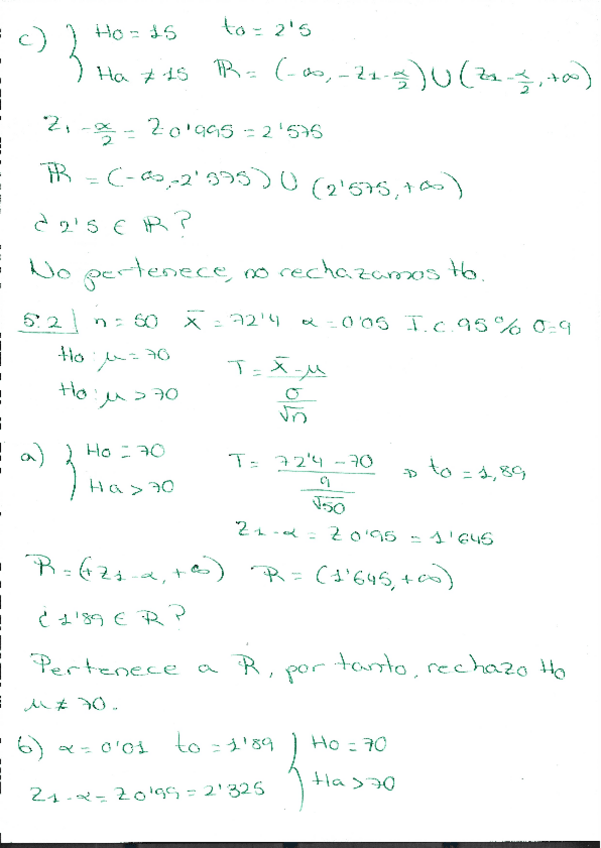 c) { Ho = 15 to = 2'5
Ha ≠ 15 R = (-∞, -Z1-α/2) ∪ (Z1-α/2, +∞)
Z1-α/2 = Z0'995 = 2'575
R = (-∞, -2'575) ∪ (2'575, +∞)
¿ 2'5 ∈ R ?
No pertenece, no rechazamos Ho.
5.2 | n = 50 x̄ = 72'4 α = 0'05 I.C. 95% σ = 9
Ho: μ = 70 T = (x̄ - μ) / (σ/√n)
Ho: μ > 70
a) { Ho = 70 T = (72'4 - 70) / (9/√50) ⇒ to = 1,89
Ha > 70
Z1-α = Z0'95 = 1'645
R = (+Z1-α, +∞) R = (1'645, +∞)
¿ 1'89 ∈ R ?
Pertenece a R, por tanto, rechazo Ho
μ ≠ 70.
b) α = 0'01 to = 1'89 { Ho = 70
Z1-α = Z0'99 = 2'325 Ha > 70